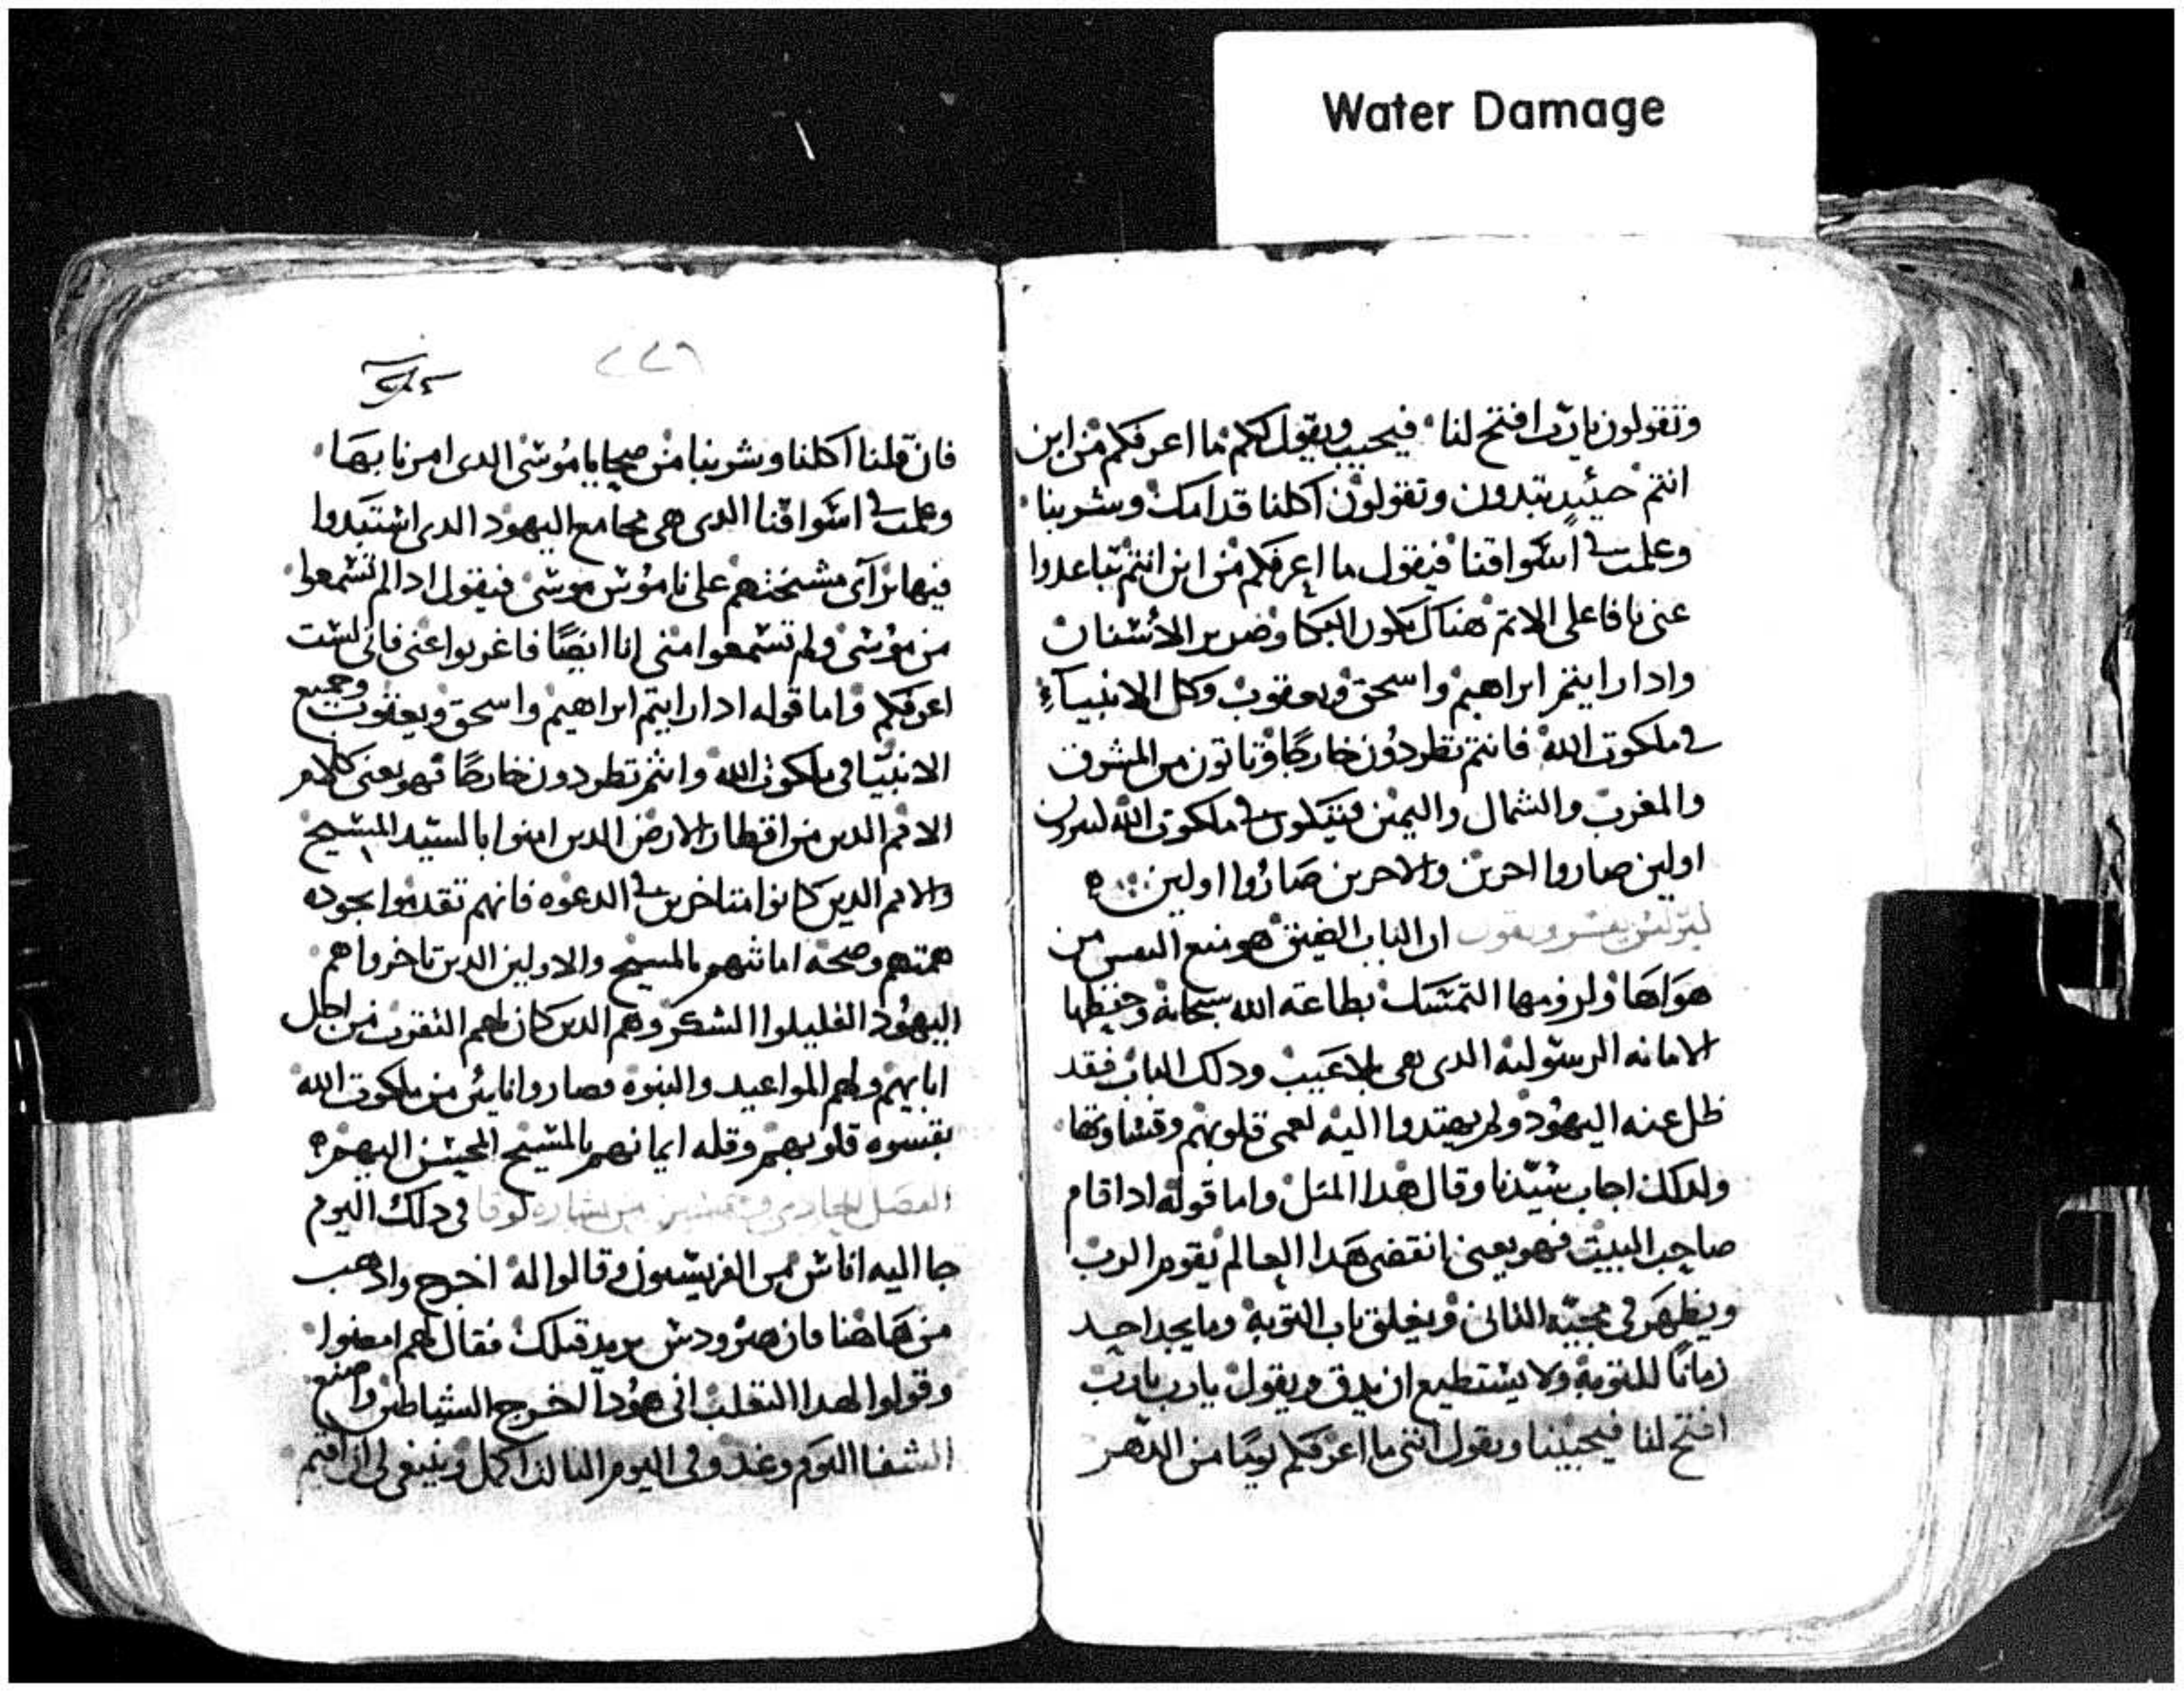 Water Damage
وتقولون يارب افتح لنا فيجيب ويقول لكم ما اعرفكم من اين
انتم حينيد تبتدون وتقولون اكلنا قدامك وشربنا
وعلمت في اسواقنا فيقول ما اعرفكم من اين انتم تباعدوا
عنى يا فاعلى الاتم هناك يكون البكا وضرير الأسنان
وادا رايتم ابراهيم واسحق ويعقوب وكل الانبيآء
في ملكوت الله فانتم تطردون خارجًا وياتون من المشرق
والمغرب والشمال واليمن فيتكون في ملكوت الله
اولين صاروا اخرين والاخرين صاروا اولين
يفسر ويقول ان الباب الضيق هو منع النفس من
هواها ولزومها التمسك بطاعة الله سبحانه وحفظها
الامانه الرسوليه الدى هى بلا عيب ودلك الباب فقد
ظل عنه اليهود ولم يهتدوا اليه لعمى قلوبهم وقساوتها
ولدلك اجاب سيدنا وقال هدا المتل واما قوله ادا قام
صاحب البيت فهو يعنى انقضى هدا العالم يقوم الرب
ويظهر في مجيه التانى ويغلق باب التوبه وما يجد احد
زمانًا للتوبه ولا يستطيع ان يدق ويقول يارب يارب
افتح لنا فيجيبنا ويقول اننى ما اعرفكم يومًا من الدهر
٢٢٦
فان قلنا اكلنا وشربنا من صحايا موسى الدى امرنا بها
وعلمت في اسواقنا الدى هى مجامع اليهود الدى استبدوا
فيها برآى مشيختهم على ناموس موسى فيقول ادا لم تسمعوا
من موسى ولم تسمعوا منى انا ايضًا فاغربوا عنى فانى لست
اعرفكم واما قوله ادا رايتم ابراهيم واسحق ويعقوب وجميع
الانبيا فى ملكوت الله وانتم تطردون خارجًا فهو يعنى كلام
الامم الدين من اقطار الارض الدين امنوا بالسيد المسيح
والامم الدين كانوا متاخرين في الدعوه فانهم تقدموا بجوده
همتهم وصحة امانتهم بالمسيح والاولين الدين تاخروا هم
اليهود القليلوا الشكر وهم الدين كان لهم التقرب من اجل
ابايهم ولهم المواعيد والنبوه فصاروا من ملكوت الله
بقسوه قلوبهم وقله ايمانهم بالمسيح المحسن اليهم
الفصل الحادى وخمسين من بشاره لوقا فى دلك اليوم
جا اليه اناس من الفريسيون وقالوا له اخرج وادهب
من هاهنا فان هيرودس يريد قتلك فقال لهم امضوا
وقولوا لهدا التعلب انى هودا اخرج الشياطين واصنع
الشفا اليوم وغد وفى اليوم التالت اكمل وينبغى لى ان اقيم